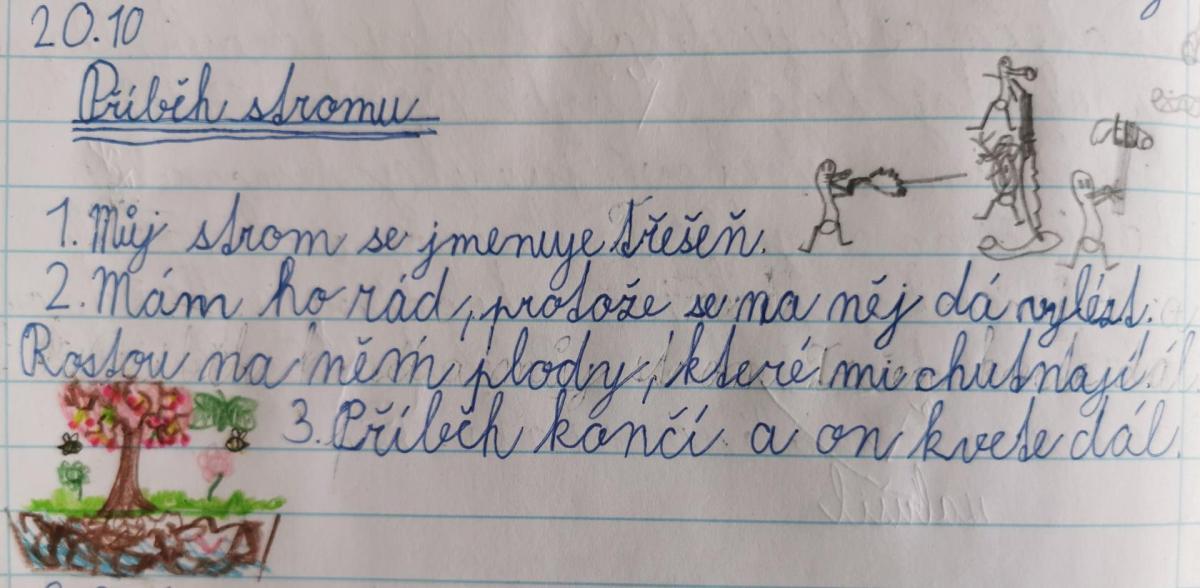 20.10
Příběh stromu
1. Můj strom se jmenuje třešeň.
2. Mám ho rád, protože se na něj dá vylézt.
Rostou na něm plody, které mi chutnají.
3. Příběh končí a on kvete dál.